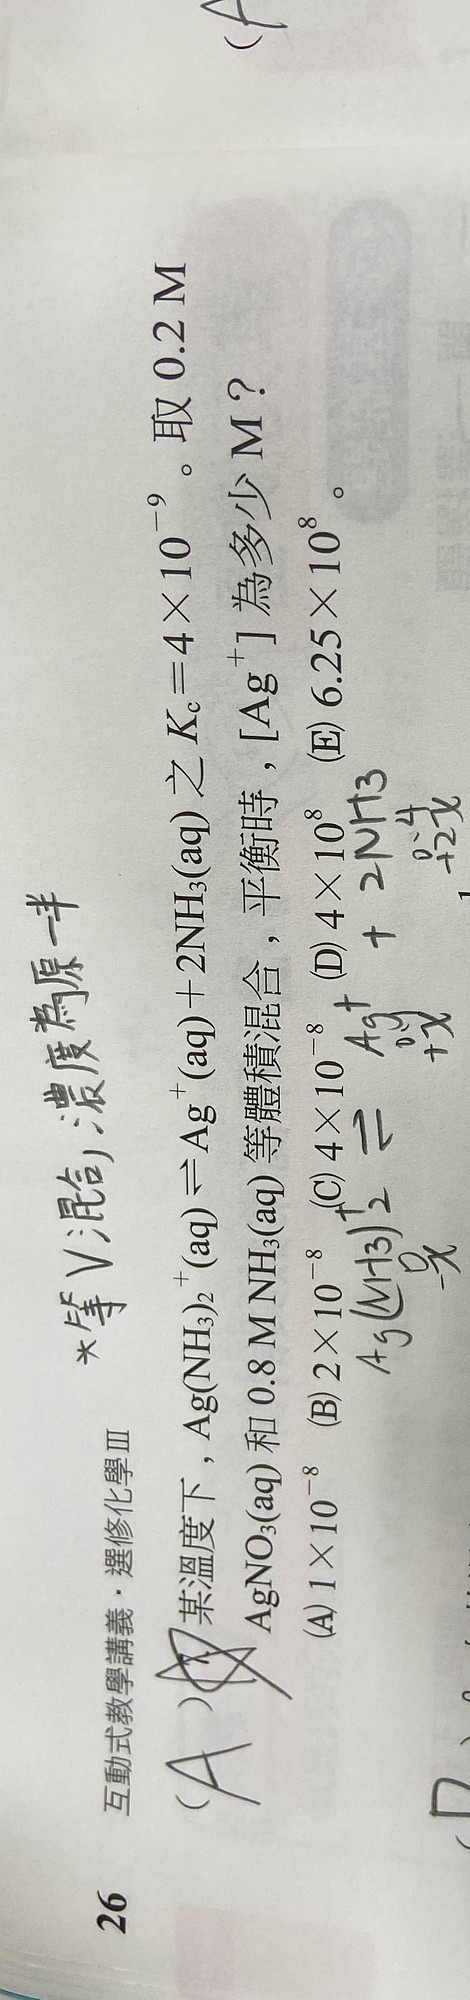 26 互動式教學講義．選修化學Ⅲ
*等V混合，濃度為原一半
(A) 某溫度下，Ag(NH₃)₂⁺(aq)⇌Ag⁺(aq)＋2NH₃(aq) 之 Kc＝4×10⁻⁹。取 0.2 M
AgNO₃(aq) 和 0.8 M NH₃(aq) 等體積混合，平衡時，[Ag⁺] 為多少 M？
(A) 1×10⁻⁸ (B) 2×10⁻⁸ (C) 4×10⁻⁸ (D) 4×10⁸ (E) 6.25×10⁸。
Ag(NH3)₂⁺ ⇌ Ag⁺ + 2NH3
0 0.1 0.4
-x +x +2x